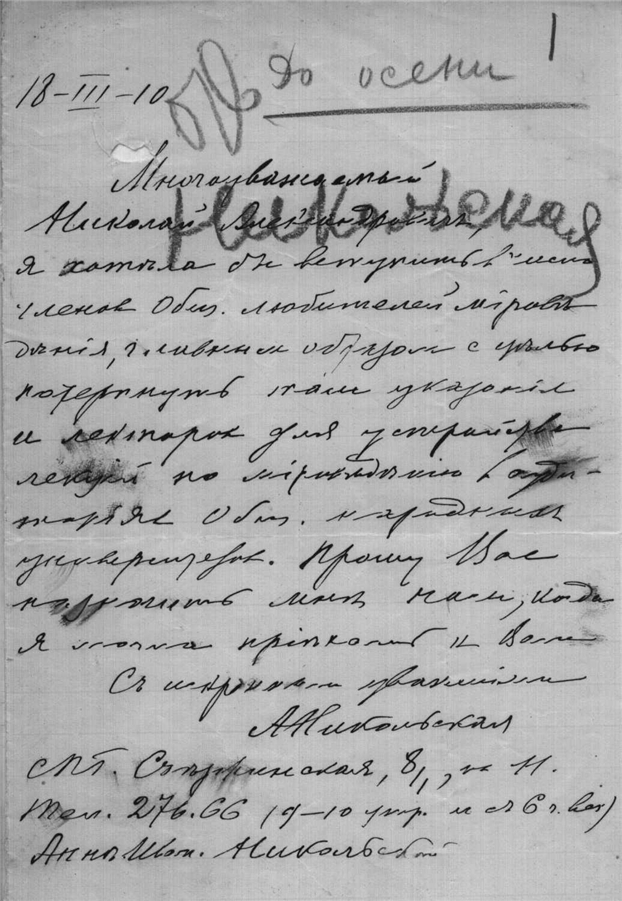 1
До осени
18-III-10
Многоуважаемый
Никольская
Николай Александрович,
я хотѣла бы вступить въ число
членов Общ. любителей міровѣ-
дѣнія, главным образом с цѣлью
почерпнуть там указанія
и лекторов для устройства
лекцій по міровѣдѣнію в ауди-
торіях Общ. народных
университетов. Прошу Вас
назначить мнѣ час, когда
я могла пріѣхать к Вам
Съ искренним уваженіем
АНикольская
СПб. Съѣзжинская, 8/1, кв 11.
Тел. 276.66 (9-10 утр. и съ 6 ч. веч)
Аннѣ Иван. Никольской